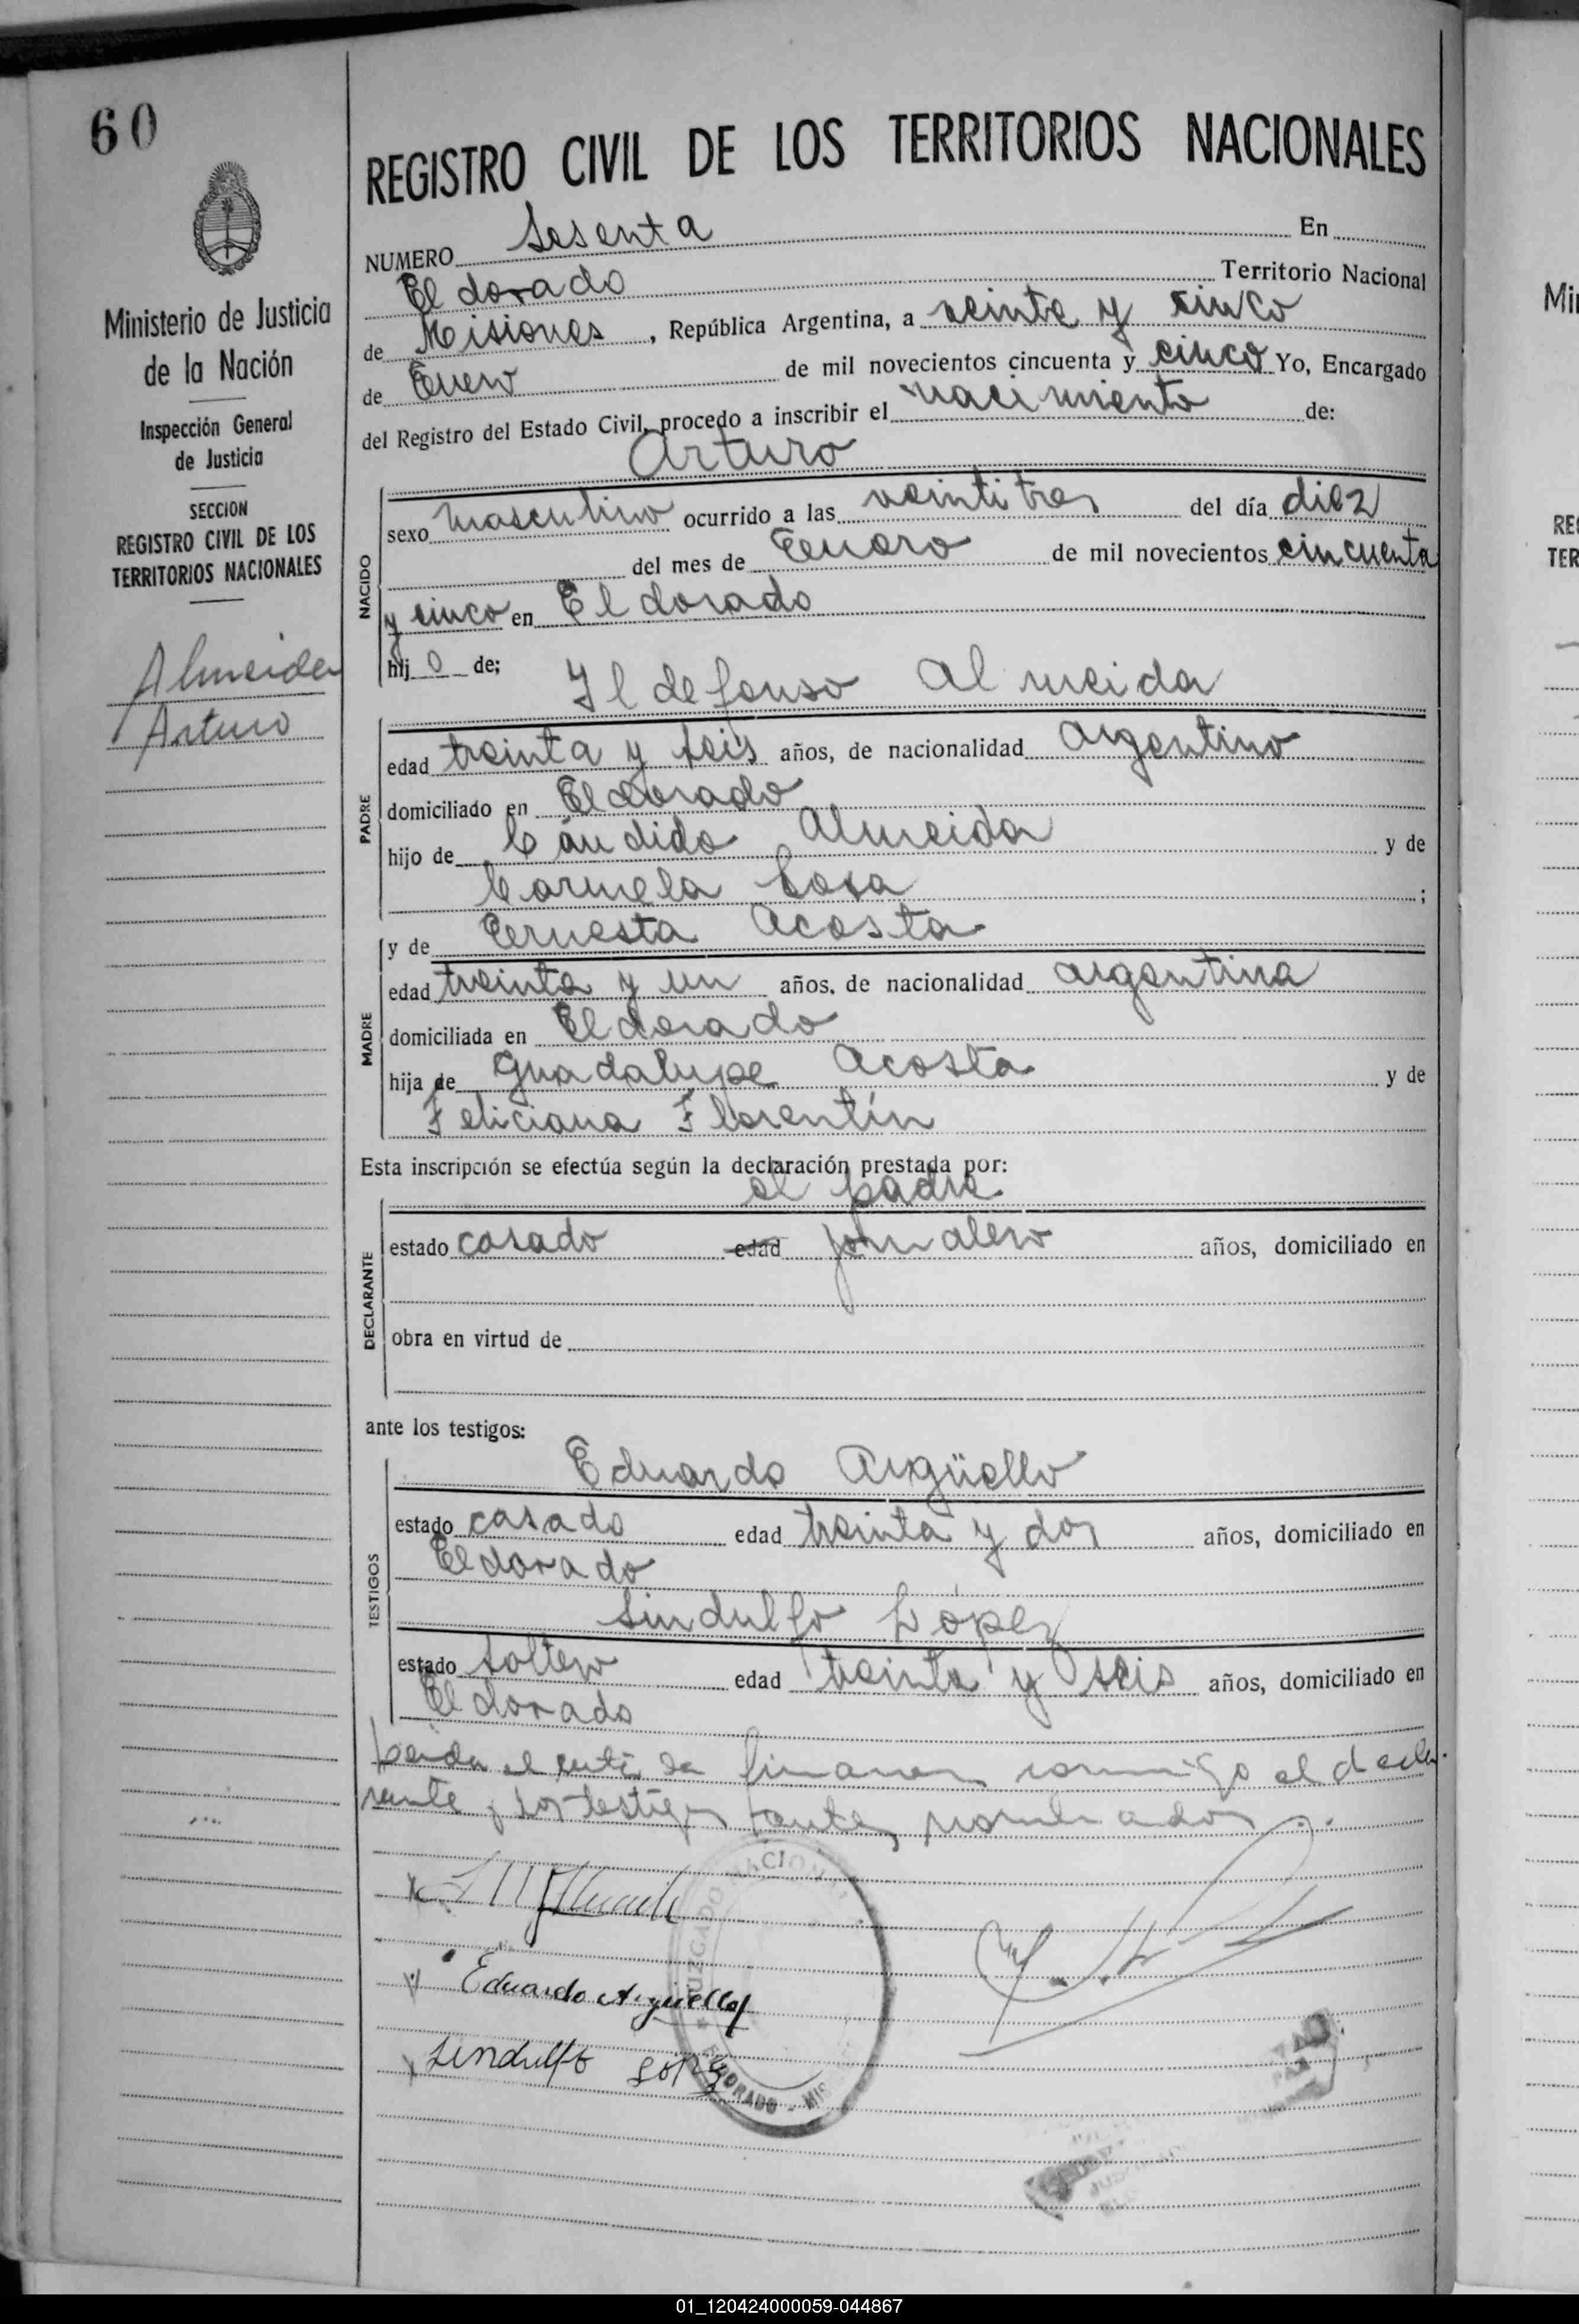 60
REGISTRO CIVIL DE LOS TERRITORIOS NACIONALES
Ministerio de Justicia
de la Nación
Inspección General
de Justicia
SECCION
REGISTRO CIVIL DE LOS
TERRITORIOS NACIONALES
Almeida
Arturo
NUMERO Sesenta En
El dorado Territorio Nacional
de Misiones, República Argentina, a veinte y cinco
de Enero de mil novecientos cincuenta y cinco Yo, Encargado
del Registro del Estado Civil, procedo a inscribir el nacimiento de:
Arturo
NACIDO
sexo masculino ocurrido a las veintitres del día diez
del mes de Enero de mil novecientos cincuenta
y cinco en El dorado
hij o de;
Ildefonso Almeida
PADRE
edad treinta y seis años, de nacionalidad Argentino
domiciliado en Eldorado
hijo de Cándido Almeida y de
Carmela Sosa ;
y de Ernesta Acosta
MADRE
edad treinta y un años, de nacionalidad argentina
domiciliada en Eldorado
hija de Guadalupe Acosta y de
Feliciana Florentín
Esta inscripción se efectúa según la declaración prestada por:
el padre
DECLARANTE
estado casado edad jornalero años, domiciliado en
obra en virtud de
ante los testigos:
Eduardo Argüello
TESTIGOS
estado casado edad treinta y dos años, domiciliado en
Eldorado
Sindulfo López
estado soltero edad treinta y seis años, domiciliado en
Eldorado
el firman conmigo el decla-
rante y los testigos nombrados
Eduardo Argüello
Sindulfo López
JUZGADO NACIONAL
ELDORADO - MIS
Mi
RE
TER
01_120424000059-044867